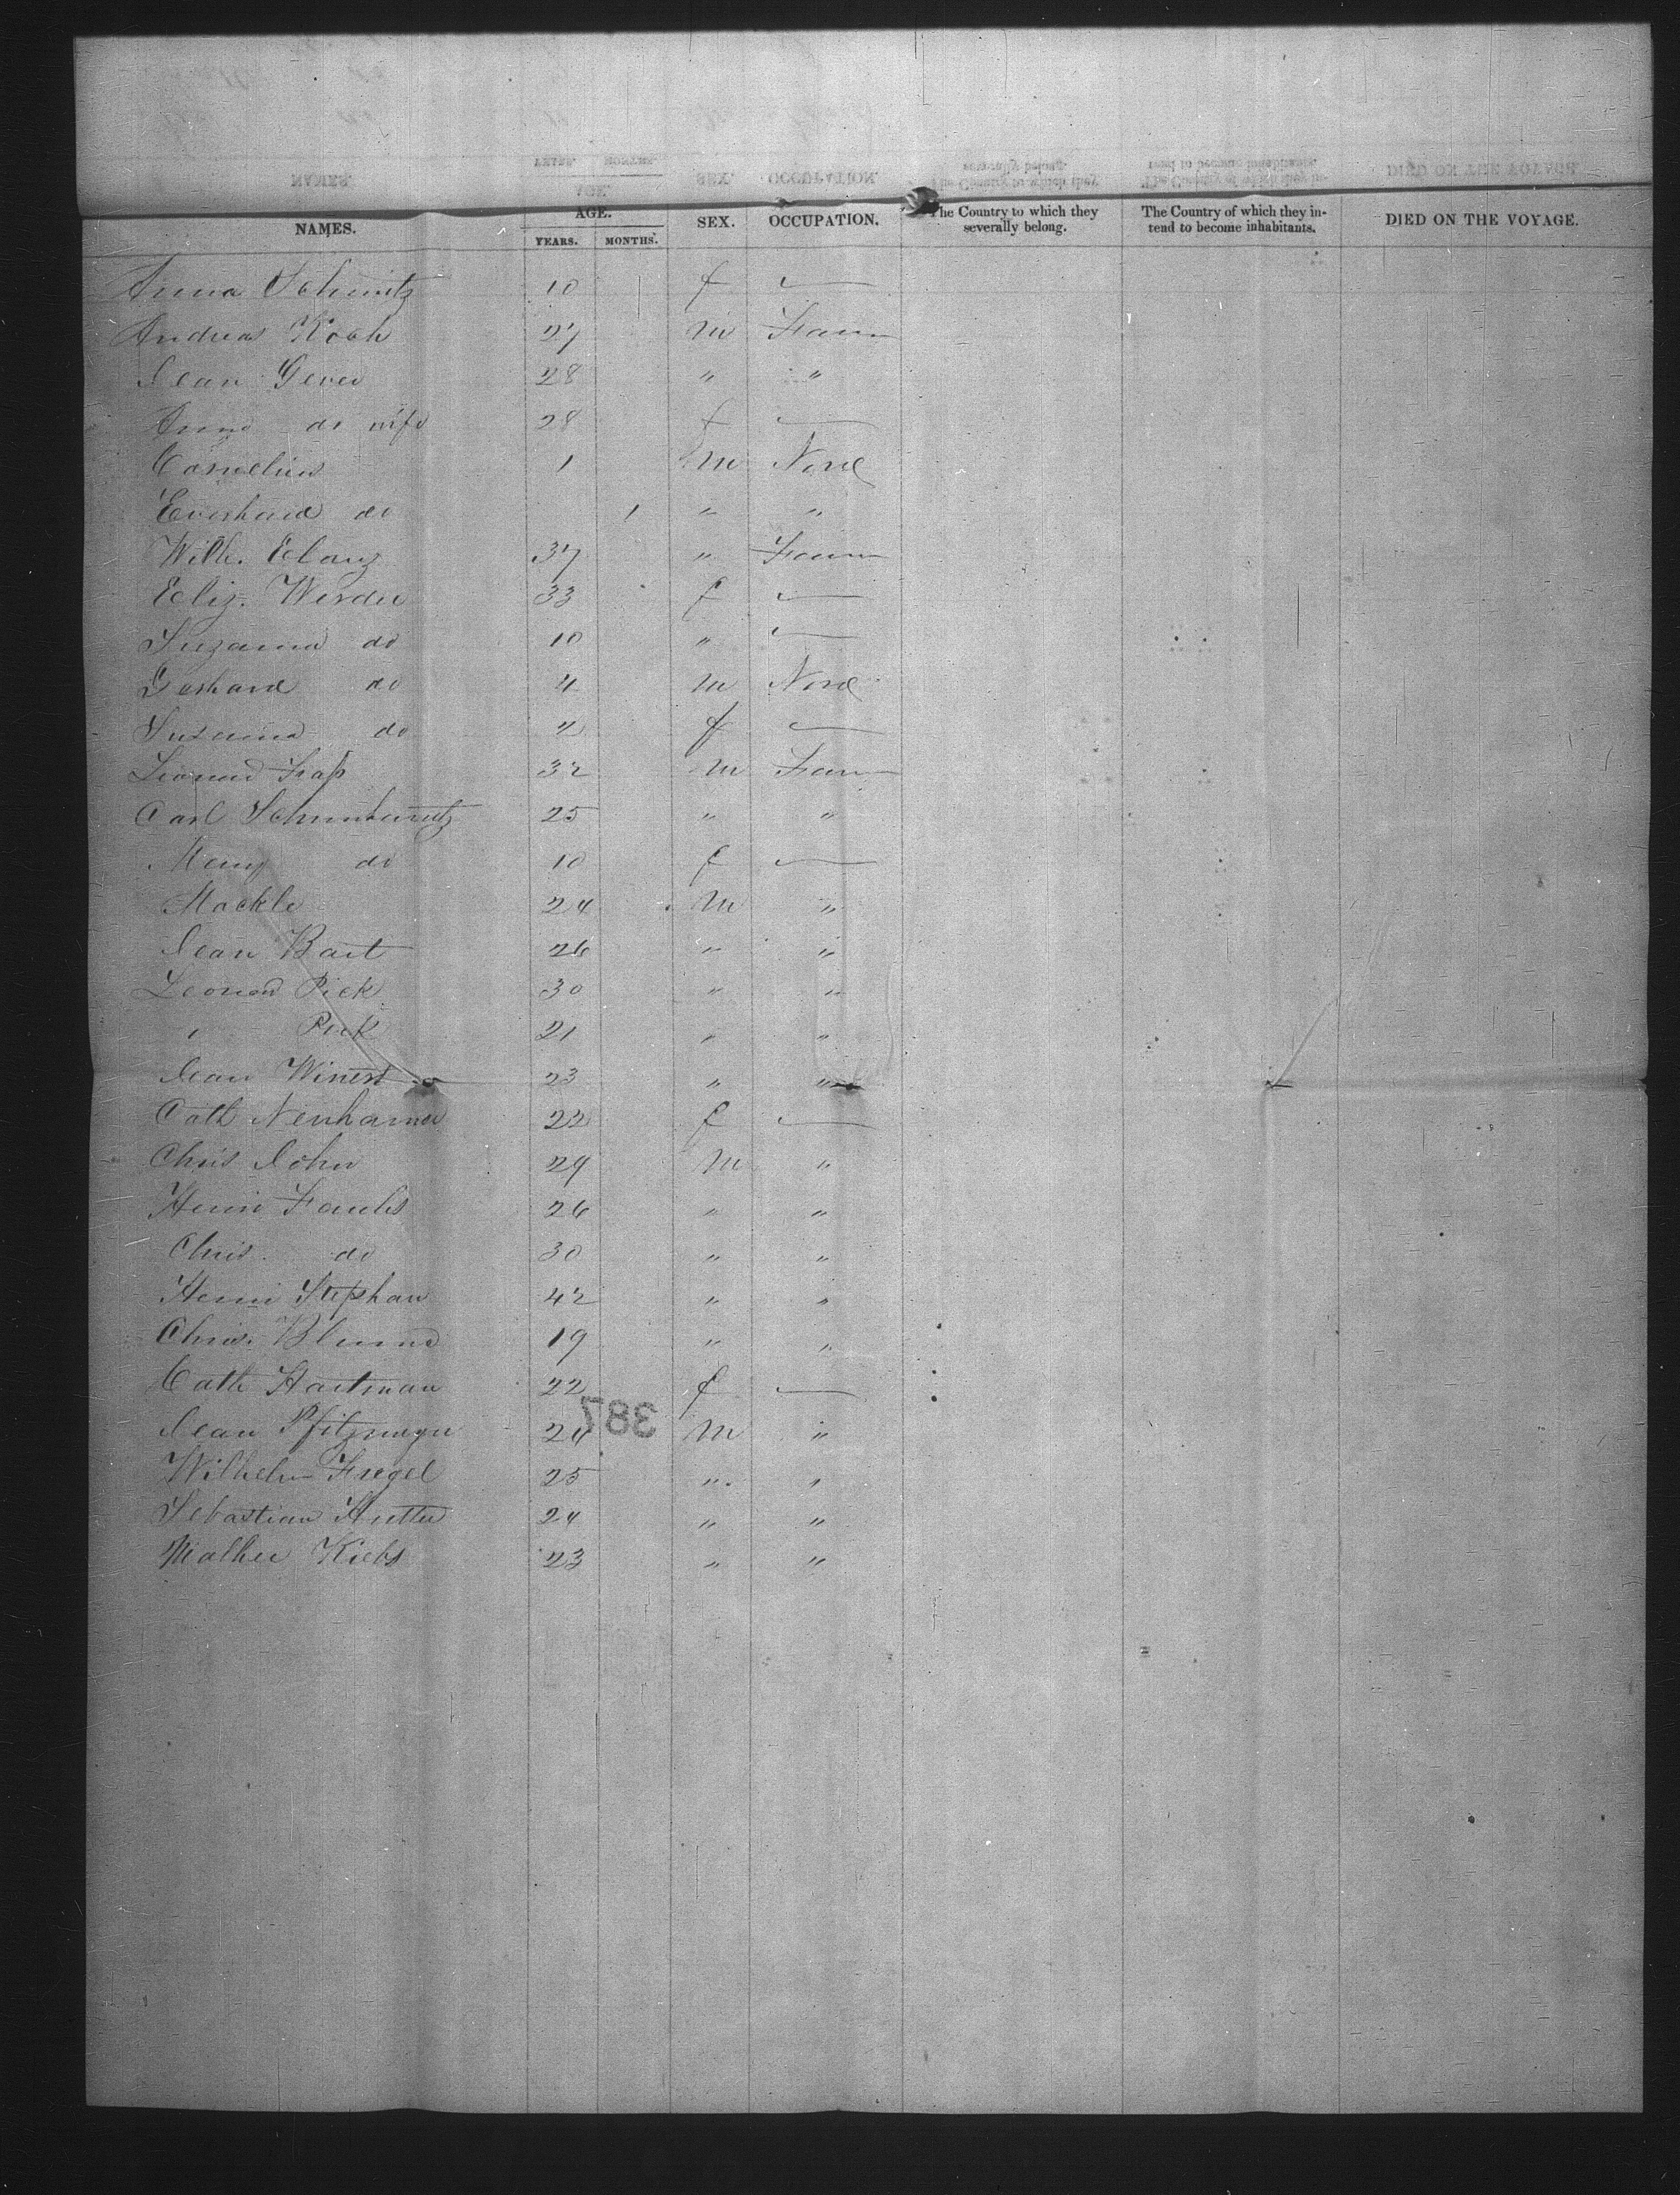 NAMES. AGE. YEARS. MONTHS. SEX. OCCUPATION. The Country to which they severally belong. The Country of which they intend to become inhabitants. DIED ON THE VOYAGE.
Anna Schmitz 10 f —
Andreas Koch 27 m Farm
Jean Gever 28 " "
Anna do wife 28 f —
Cornelius 1 m None
Everhard do 1 " "
Wilh. Eclanz 37 " Farm
Eeliz. Werder 33 f —
Suzanna do 10 " —
Gerhard do 4 m None
Susanna do 2 f —
Leonard 32 m Farm
Carl 25 " "
do 10 f —
Mackle 24 m "
Jean Bart 26 " "
Leonard Pick 30 " "
" Pick 21 " "
Jean Winest 23 " "
Cath Neuhamer 22 f —
Chris John 29 m "
Henri Fauls 26 " "
Chris. do 30 " "
Henri Stephan 42 " "
Chris. Blume 19 " "
Cath Hartman 22 f —
387
Jean Pfitzmeyer 24 m "
Wilhelm Fregel 25 " "
Sebastian Hutter 24 " "
Mather Kiebs 23 " "